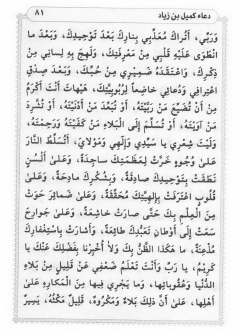 دعاء كميل بن زياد ٨١
وَرَبِّي، أَتُرَاكَ مُعَذِّبِي بِنَارِكَ بَعْدَ تَوْحِيدِكَ، وَبَعْدَ مَا
انْطَوَى عَلَيْهِ قَلْبِي مِنْ مَعْرِفَتِكَ، وَلَهِجَ بِهِ لِسَانِي مِنْ
ذِكْرِكَ، وَاعْتَقَدَهُ ضَمِيرِي مِنْ حُبِّكَ، وَبَعْدَ صِدْقِ
اعْتِرَافِي وَدُعَائِي خَاضِعاً لِرُبُوبِيَّتِكَ، هَيْهَاتَ أَنْتَ أَكْرَمُ
مِنْ أَنْ تُضَيِّعَ مَنْ رَبَّيْتَهُ، أَوْ تُبَعِّدَ مَنْ أَدْنَيْتَهُ، أَوْ تُشَرِّدَ
مَنْ آوَيْتَهُ، أَوْ تُسَلِّمَ إِلَى الْبَلَاءِ مَنْ كَفَيْتَهُ وَرَحِمْتَهُ،
وَلَيْتَ شِعْرِي يَا سَيِّدِي وَإِلٰهِي وَمَوْلَايَ، أَتُسَلِّطُ النَّارَ
عَلَىٰ وُجُوهٍ خَرَّتْ لِعَظَمَتِكَ سَاجِدَةً، وَعَلَىٰ أَلْسُنٍ
نَطَقَتْ بِتَوْحِيدِكَ صَادِقَةً، وَبِشُكْرِكَ مَادِحَةً، وَعَلَىٰ
قُلُوبٍ اعْتَرَفَتْ بِإِلٰهِيَّتِكَ مُحَقِّقَةً، وَعَلَىٰ ضَمَائِرَ حَوَتْ
مِنَ الْعِلْمِ بِكَ حَتَّىٰ صَارَتْ خَاشِعَةً، وَعَلَىٰ جَوَارِحَ
سَعَتْ إِلَىٰ أَوْطَانِ تَعَبُّدِكَ طَائِعَةً، وَأَشَارَتْ بِاسْتِغْفَارِكَ
مُذْعِنَةً، مَا هٰكَذَا الظَّنُّ بِكَ وَلَا أُخْبِرْنَا بِفَضْلِكَ عَنْكَ يَا
كَرِيمُ، يَا رَبِّ وَأَنْتَ تَعْلَمُ ضَعْفِي عَنْ قَلِيلٍ مِنْ بَلَاءِ
الدُّنْيَا وَعُقُوبَاتِهَا، وَمَا يَجْرِي فِيهَا مِنَ الْمَكَارِهِ عَلَىٰ
أَهْلِهَا، عَلَىٰ أَنَّ ذٰلِكَ بَلَاءٌ وَمَكْرُوهٌ، قَلِيلٌ مَكْثُهُ، يَسِيرٌ